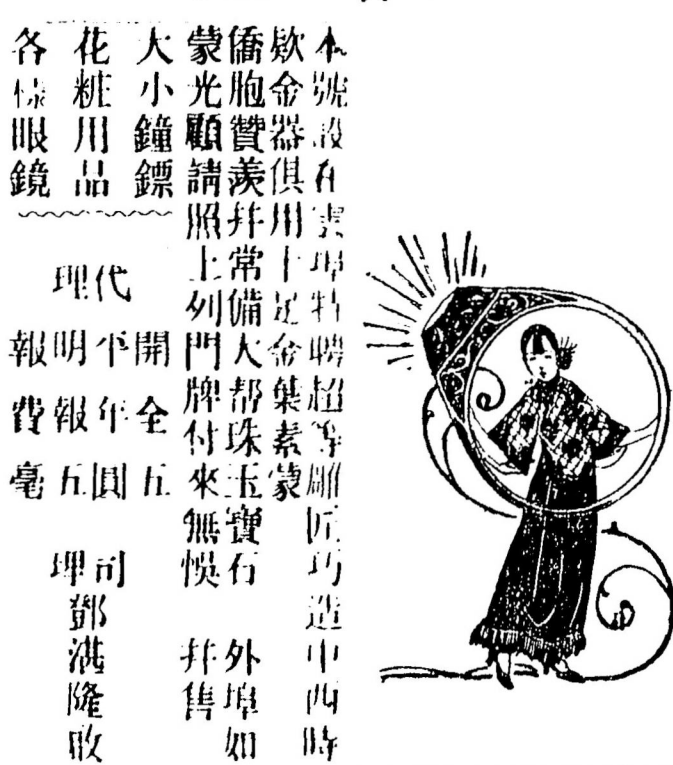 本號設在雲埠特聘超等雕匠巧造中西時
欵金器俱用十足金葉素蒙
僑胞贊羨并常備大帮珠玉寶石 外埠如
蒙光顧請照上列門牌付來無悞 并售
大小鐘鏢
花粧用品
各樣眼鏡
代理
開平明報
全年報費
五圓五毫
司理
鄧湛隆啟